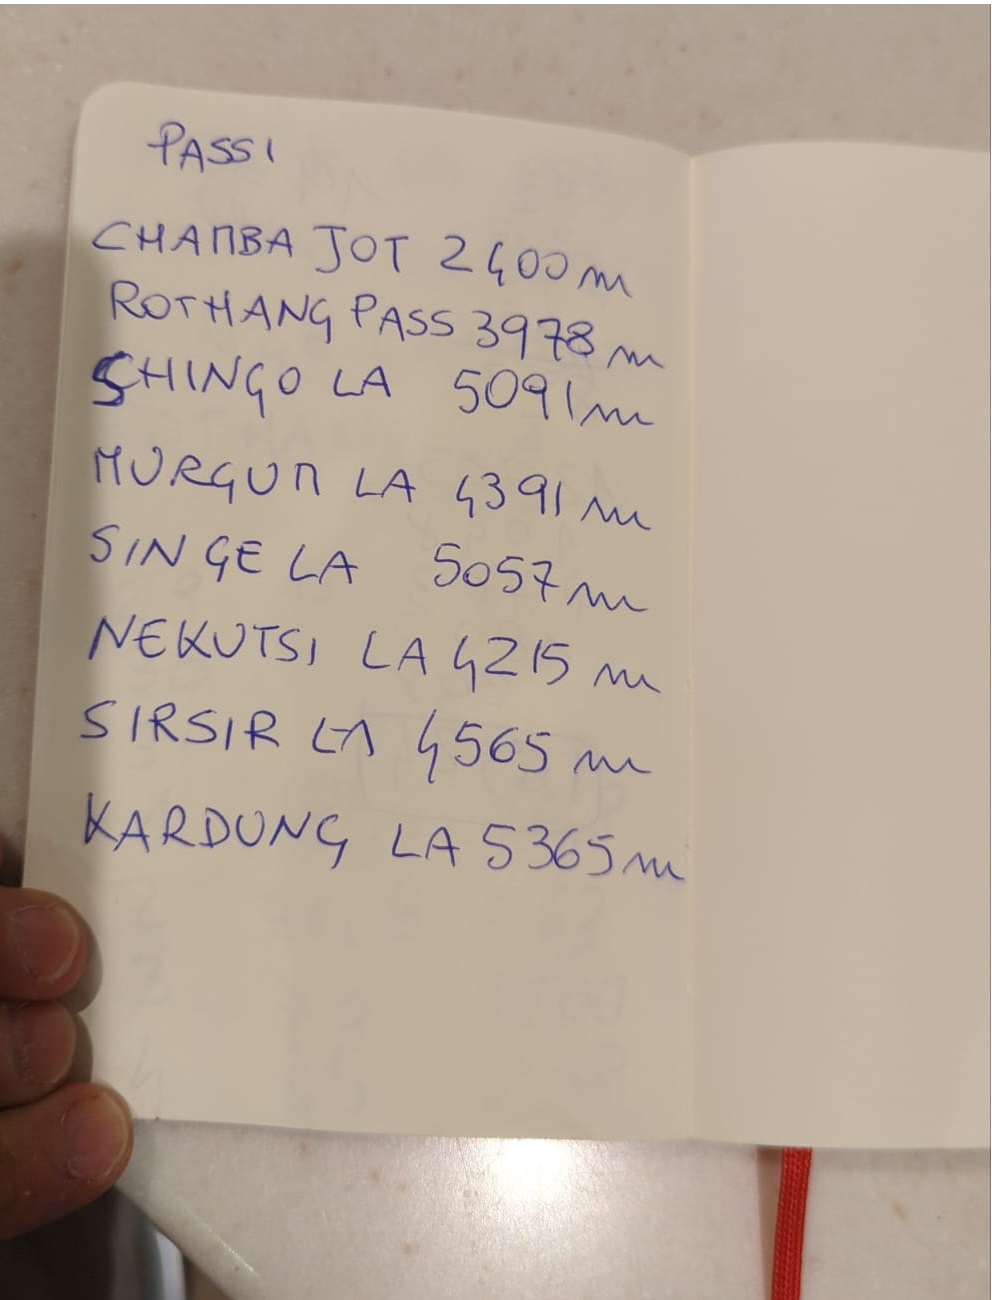 PASSI
CHAMBA JOT 2400 m
ROTHANG PASS 3978 m
SHINGO LA 5091 m
MURGUM LA 4391 m
SINGE LA 5057 m
NEKUTSI LA 4215 m
SIRSIR LA 4565 m
KARDUNG LA 5365 m